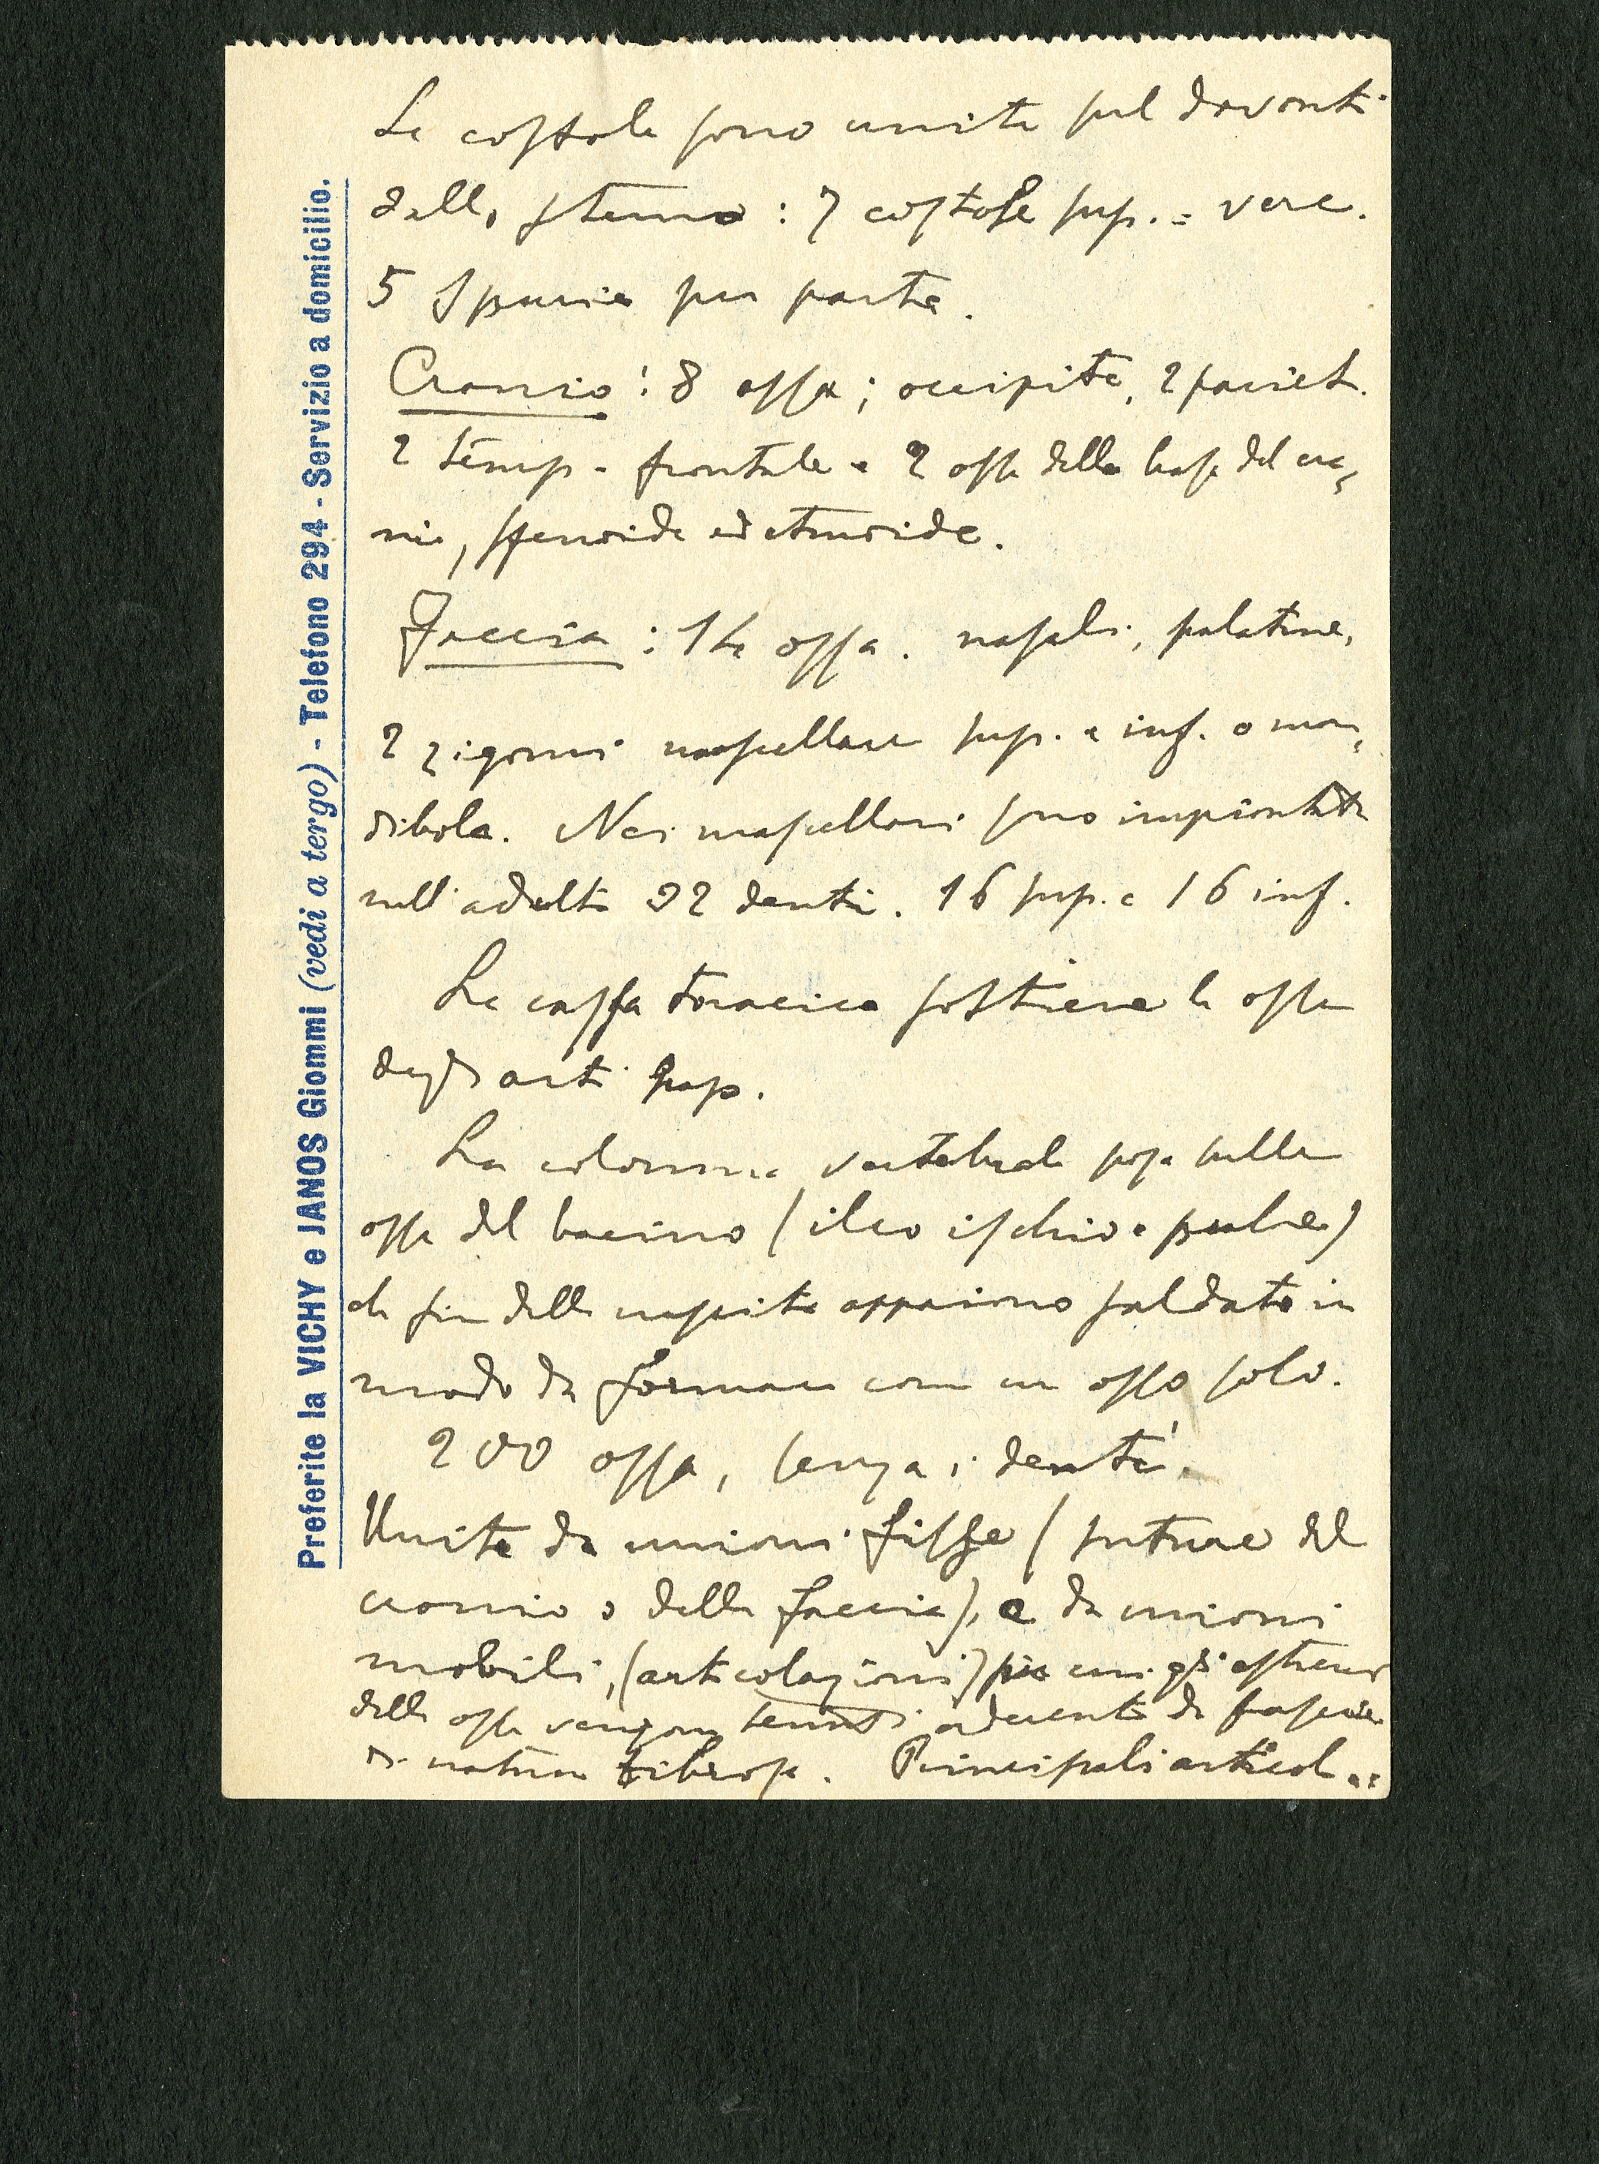 Le costole sono unite sul davanti
dallo sterno: 7 costole sup. = vere.
5 spurie per parte.
Cranio: 8 ossa; occipite, 2 pariet.
2 temp. frontale e 2 ossa della base del cra=
nio, sfenoide ed etmoide.
Faccia: 14 ossa. nasali, palatine,
2 zigomi mascellare sup. e inf. o man=
dibola. Nei mascellari sono impiantati
nell'adulto 32 denti. 16 sup. e 16 inf.
La cassa toracica sostiene le ossa
degli arti sup.
La colonna vertebrale posa sulle
ossa del bacino (ileo ischio e pube)
che fin dalla nascita appaiono saldate in
modo da formare come un osso solo.
200 ossa, senza i denti.
Unite da unioni fisse (suture del
cranio o della faccia), e da unioni
mobili, (articolazioni) cui gli estremi
delle ossa vengon tenuti aderenti da fascie
di natura fibrosa. Principali articol..
Preferite la VICHY e JANOS Giommi (vedi a tergo) - Telefono 294 - Servizio a domicilio.